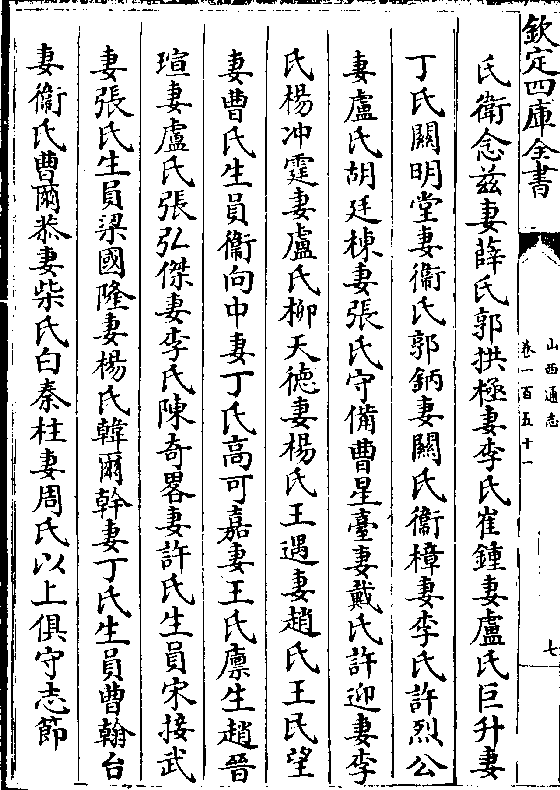 欽定四庫全書
山西通志
卷一百五十一
七
氏衛念兹妻薛氏郭拱極妻李氏崔鍾妻盧氏巨升妻
丁氏闗明堂妻衞氏郭鈵妻闗氏衞樟妻李氏許烈公
妻盧氏胡廷棟妻張氏守備曹星臺妻戴氏許迎妻李
氏楊冲霆妻盧氏柳天徳妻楊氏王遇妻趙氏王民望
妻曹氏生員衞向中妻丁氏高可嘉妻王氏廪生趙晉
瑄妻盧氏張弘傑妻李氏陳奇畧妻許氏生員宋接武
妻張氏生員梁國隆妻楊氏韓爾幹妻丁氏生員曹翰台
妻衞氏曹爾恭妻柴氏白秦柱妻周氏以上俱守志節